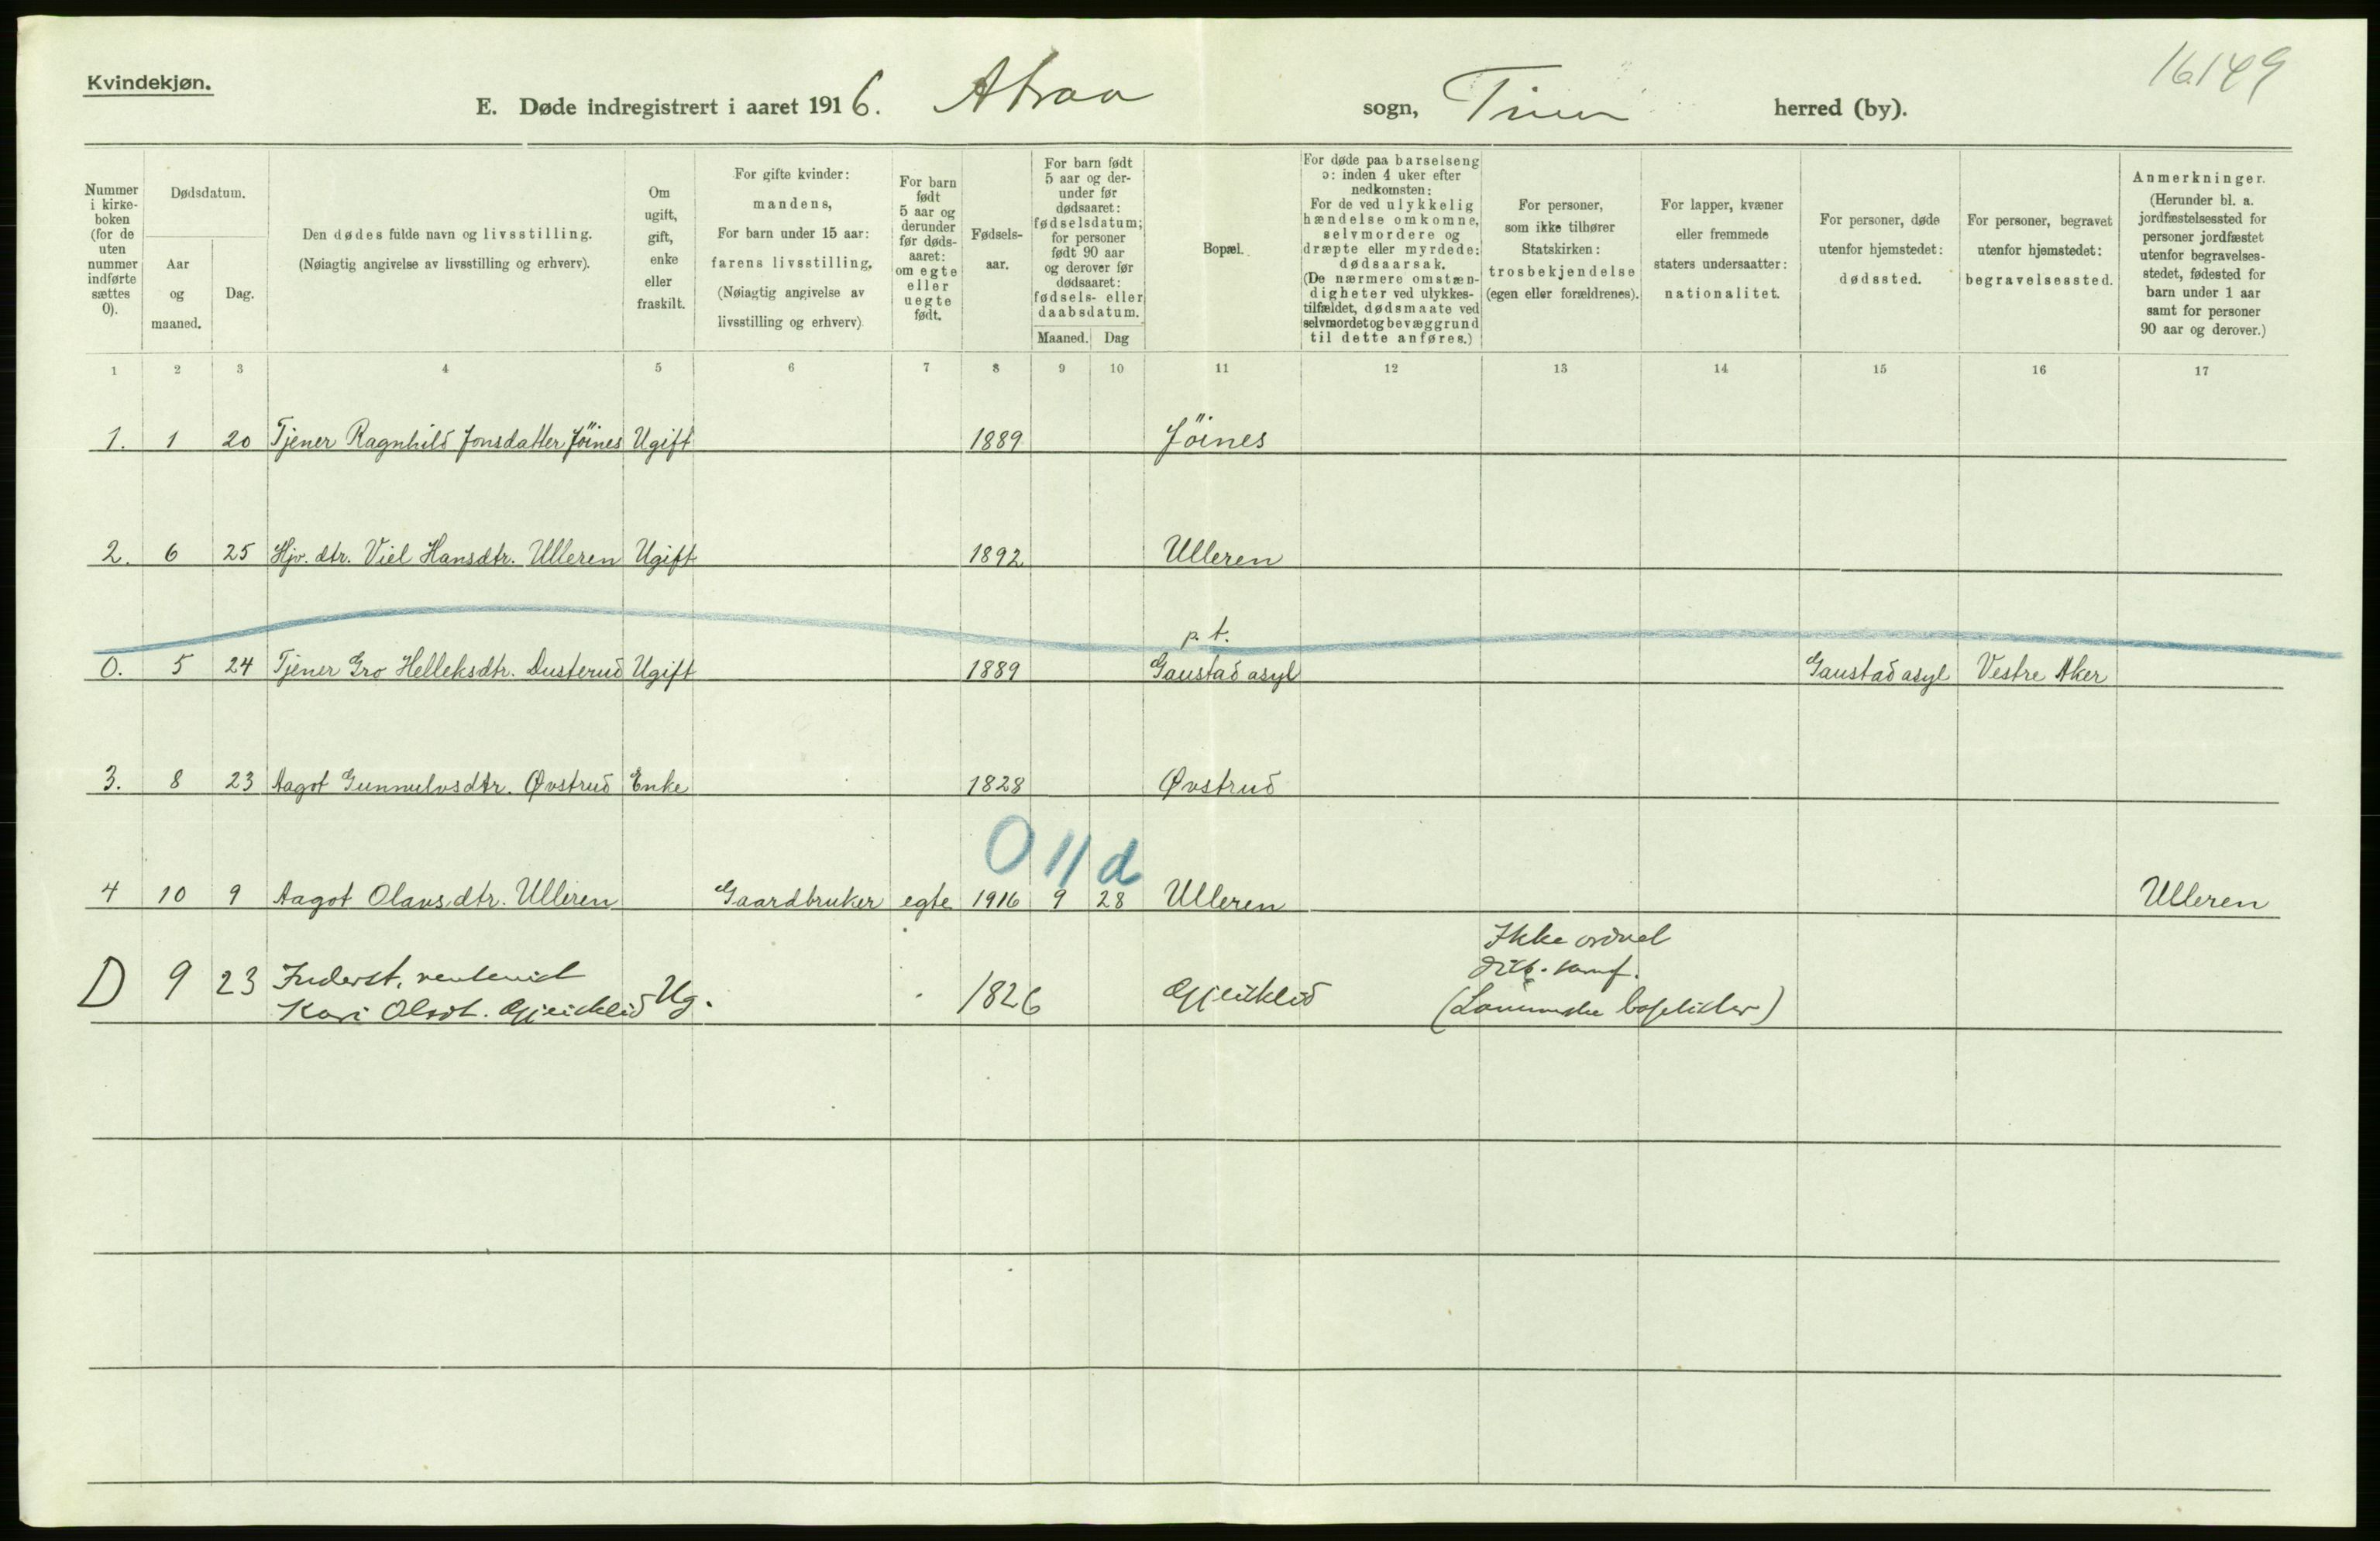 Kvindekjøn.
16149
E. Døde indregistrert i aaret 1916. Atraa sogn, Tinn herred (by).
Nummer i kirke-boken (for de uten nummer indførte sættes 0).
Dødsdatum.
Aar og maaned.
Dag.
Den dødes fulde navn og livsstilling.
(Nøiagtig angivelse av livsstilling og erhverv).
Om ugift, gift, enke eller fraskilt.
For gifte kvinder:
mandens,
For barn under 15 aar:
farens livsstilling.
(Nøiagtig angivelse av
livsstilling og erhverv).
For barn født 5 aar og derunder før døds-aaret: om egte eller uegte født.
Fødsels-aar.
For barn født 5 aar og der-under før dødsaaret: fødselsdatum; for personer født 90 aar og derover før dødsaaret: fødsels- eller daabsdatum.
Maaned. Dag
Bopæl.
For døde paa barselseng
ɔ: inden 4 uker efter
nedkomsten:
For de ved ulykkelig
hændelse omkomne,
selvmordere og
dræpte eller myrdede:
dødsaarsak.
(De nærmere omstæn-
digheter ved ulykkes-
tilfældet, dødsmaate ved
selvmordet og bevæggrund
til dette anføres.)
For personer,
som ikke tilhører
Statskirken:
trosbekjendelse
(egen eller forældrenes).
For lapper, kvæner
eller fremmede
staters undersaatter:
nationalitet.
For personer, døde
utenfor hjemstedet:
dødssted.
For personer, begravet
utenfor hjemstedet:
begravelsessted.
Anmerkninger.
(Herunder bl. a.
jordfæstelsessted for
personer jordfæstet
utenfor begravelses-
stedet, fødested for
barn under 1 aar
samt for personer
90 aar og derover.)
1 2 3 4 5 6 7 8 9 10 11 12 13 14 15 16 17
1. 1 20 Tjener Ragnhild Jonsdatter Jöines Ugift 1889 Jöines
2. 6 25 Hjv. dtr. Viel Hansdtr. Ulleren Ugift 1892 Ulleren
p. t.
0. 5 24 Tjener Gro Helleksdtr. Dusterud Ugift 1889 Gaustad asyl Gaustad asyl Vestre Aker
3. 8 23 Aagot Gunnulvsdtr. Øvstrud Enke 1828 Øvstrud
0 11 d
4 10 9 Aagot Olavsdtr. Ulleren Gaardbruker egte 1916 9 28 Ulleren Ulleren
Ikke ordnet
D 9 23 Inderst, Ug. 1826
Kari Olsdt.